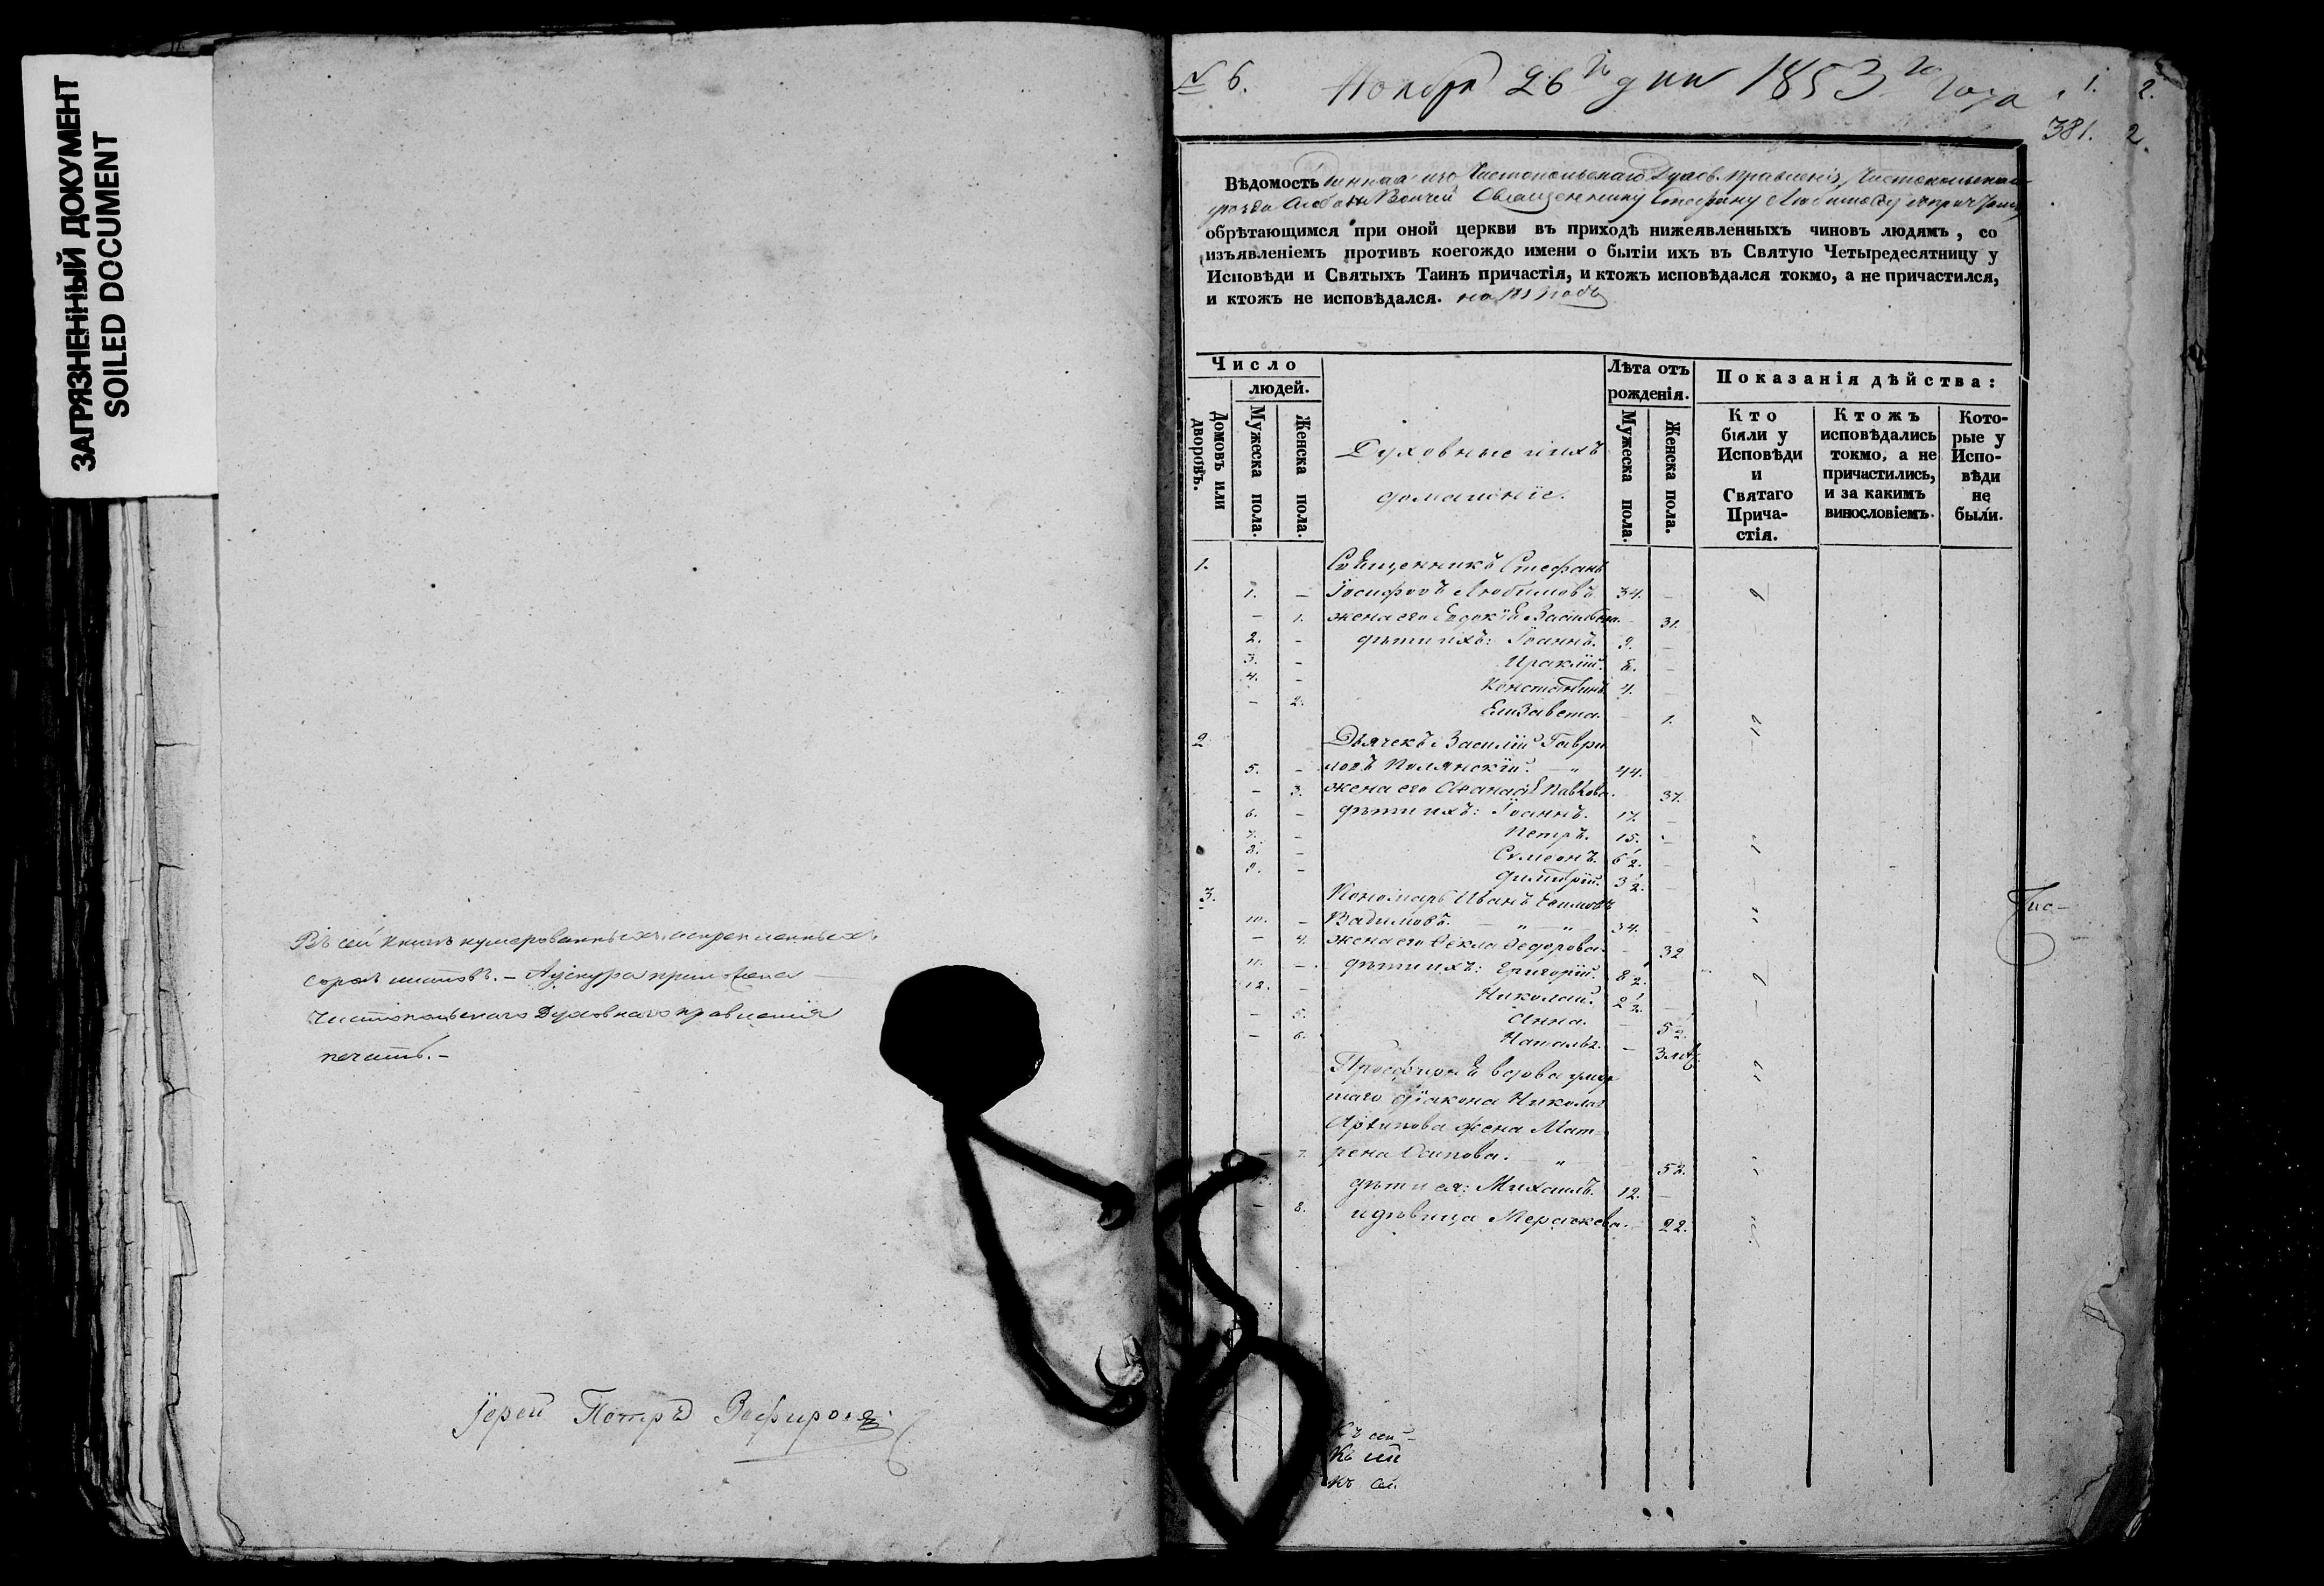 ЗАГРЯЗНЕННЫЙ ДОКУМЕНТ
SOILED DOCUMENT
Въ сей книгѣ нумерованныхъ
сорокъ листовъ. – А у шнура приложена
Чистопольскаго Духовнаго правленія
печать. –
Іерей Петръ Зефировъ
№ 6.
Ноября 26 дня 1853 го года
1. 2.
381. 2.
Вѣдомость данная изъ Чистопольскаго Духов. Правленія, Чистопольскаго
уѣзда Священнику Стефану Любимову
обрѣтающимся при оной церкви въ приходѣ нижеявленныхъ чиновъ людямъ, со
изъявленіемъ противъ коегождо имени о бытіи ихъ въ Святую Четыредесятницу у
Исповѣди и Святыхъ Таинъ причастія, и ктожъ исповѣдался токмо, а не причастился,
и ктожъ не исповѣдался. на годъ
Число
людей.
Домовъ или дворовъ.
Мужеска пола.
Женска пола.
Духовные и ихъ
домашніе.
Лѣта отъ
рожденія.
Мужеска пола.
Женска пола.
Показанія дѣйства:
Кто
были у
Исповѣди
и
Святаго
Прича-
стія.
Ктожъ
исповѣдались
токмо, а не
причастились,
и за какимъ
винословіемъ.
Кото-
рые у
Испо-
вѣди
не
были.
1. Священникъ Стефанъ
1. – Іосифовъ Любимовъ 34. –
– 1. жена его Евдокія Васильева. – 31.
2. – дѣти ихъ: Іоаннъ. 9. –
3. – Ираклій. 6. –
4. – Константинъ 4. –
– 2. Елизавета. – 1.
2 Дьячекъ Василій Гаври
5. – ловъ Полянскій. – „ 44. –
– 3. жена его Павлова. – 37.
6. – дѣти ихъ: Іоаннъ. 17. –
7. – Петръ. 15. –
8. – Симеонъ. 6 1/2. –
9. – Димитрій. 3 1/2. –
3. Пономарь Иванъ
10. – Вадимовъ. – „ – „ 34. –
– 4. жена его Ѳекла Ѳедорова. – 32
11. – дѣти ихъ: Григорій. 8 1/2.
12. – Николай. 2 1/2. –
– 5. Анна. – 5 1/2.
– 6. Наталья. –
Просфирня вдова умер
шаго діакона Николая
Архипова жена Мат-
– 7. рена Осипова. – „ – 52.
дѣти ея: Михаилъ. 12. –
– 8. и дѣвица – 22.
Пис-
Къ сей
Къ сей
Къ сей.